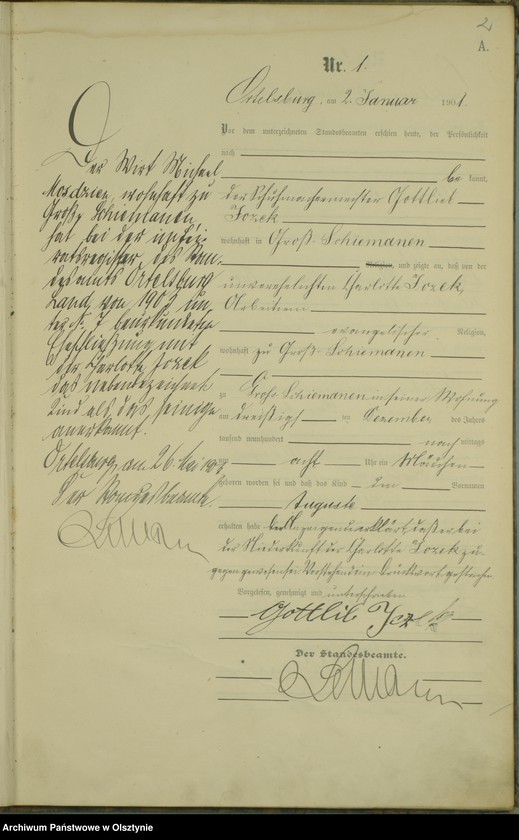 2
A.
Nr. 1.
Ortelsburg, am 2. Januar 1901.
Vor dem unterzeichneten Standesbeamten erschien heute, der Persönlichkeit
nach
be kannt,
der Schuhmachermeister Gottlieb
Jozek
wohnhaft in Groß Schiemanen
Religion, und zeigte an, daß von der
unverehelichten Charlotte Jozek,
Arbeiterin
evangelischer Religion,
wohnhaft zu Groß Schiemanen
zu Groß Schiemanen in seiner Wohnung
am dreißigsten Dezember des Jahres
tausend neunhundert nach mittags
um acht Uhr ein Mädchen
geboren worden sei und daß das Kind den Vornamen
Auguste
erhalten habe. Anzeigender erklärt, daß er bei
der Niederkunft der Charlotte Jozek zu-
gegen gewesen sei. Vorstehend ein Druckwort gestrichen
Vorgelesen, genehmigt und unterschrieben
Gottlib Jozek
Der Standesbeamte.
Der Wirt Michael
wohnhaft zu
Groß Schiemanen
hat bei der im Hei-
ratsregister des Stan-
desamts Ortelsburg
Land von 1902 un-
ter N. 7 beurkundeten
Eheschließung mit
der Charlotte Jozek
das nebenbezeichnete
Kind als das seinige
anerkannt.
Ortelsburg, am 26. Mai
Der Standesbeamte.
Archiwum Państwowe w Olsztynie